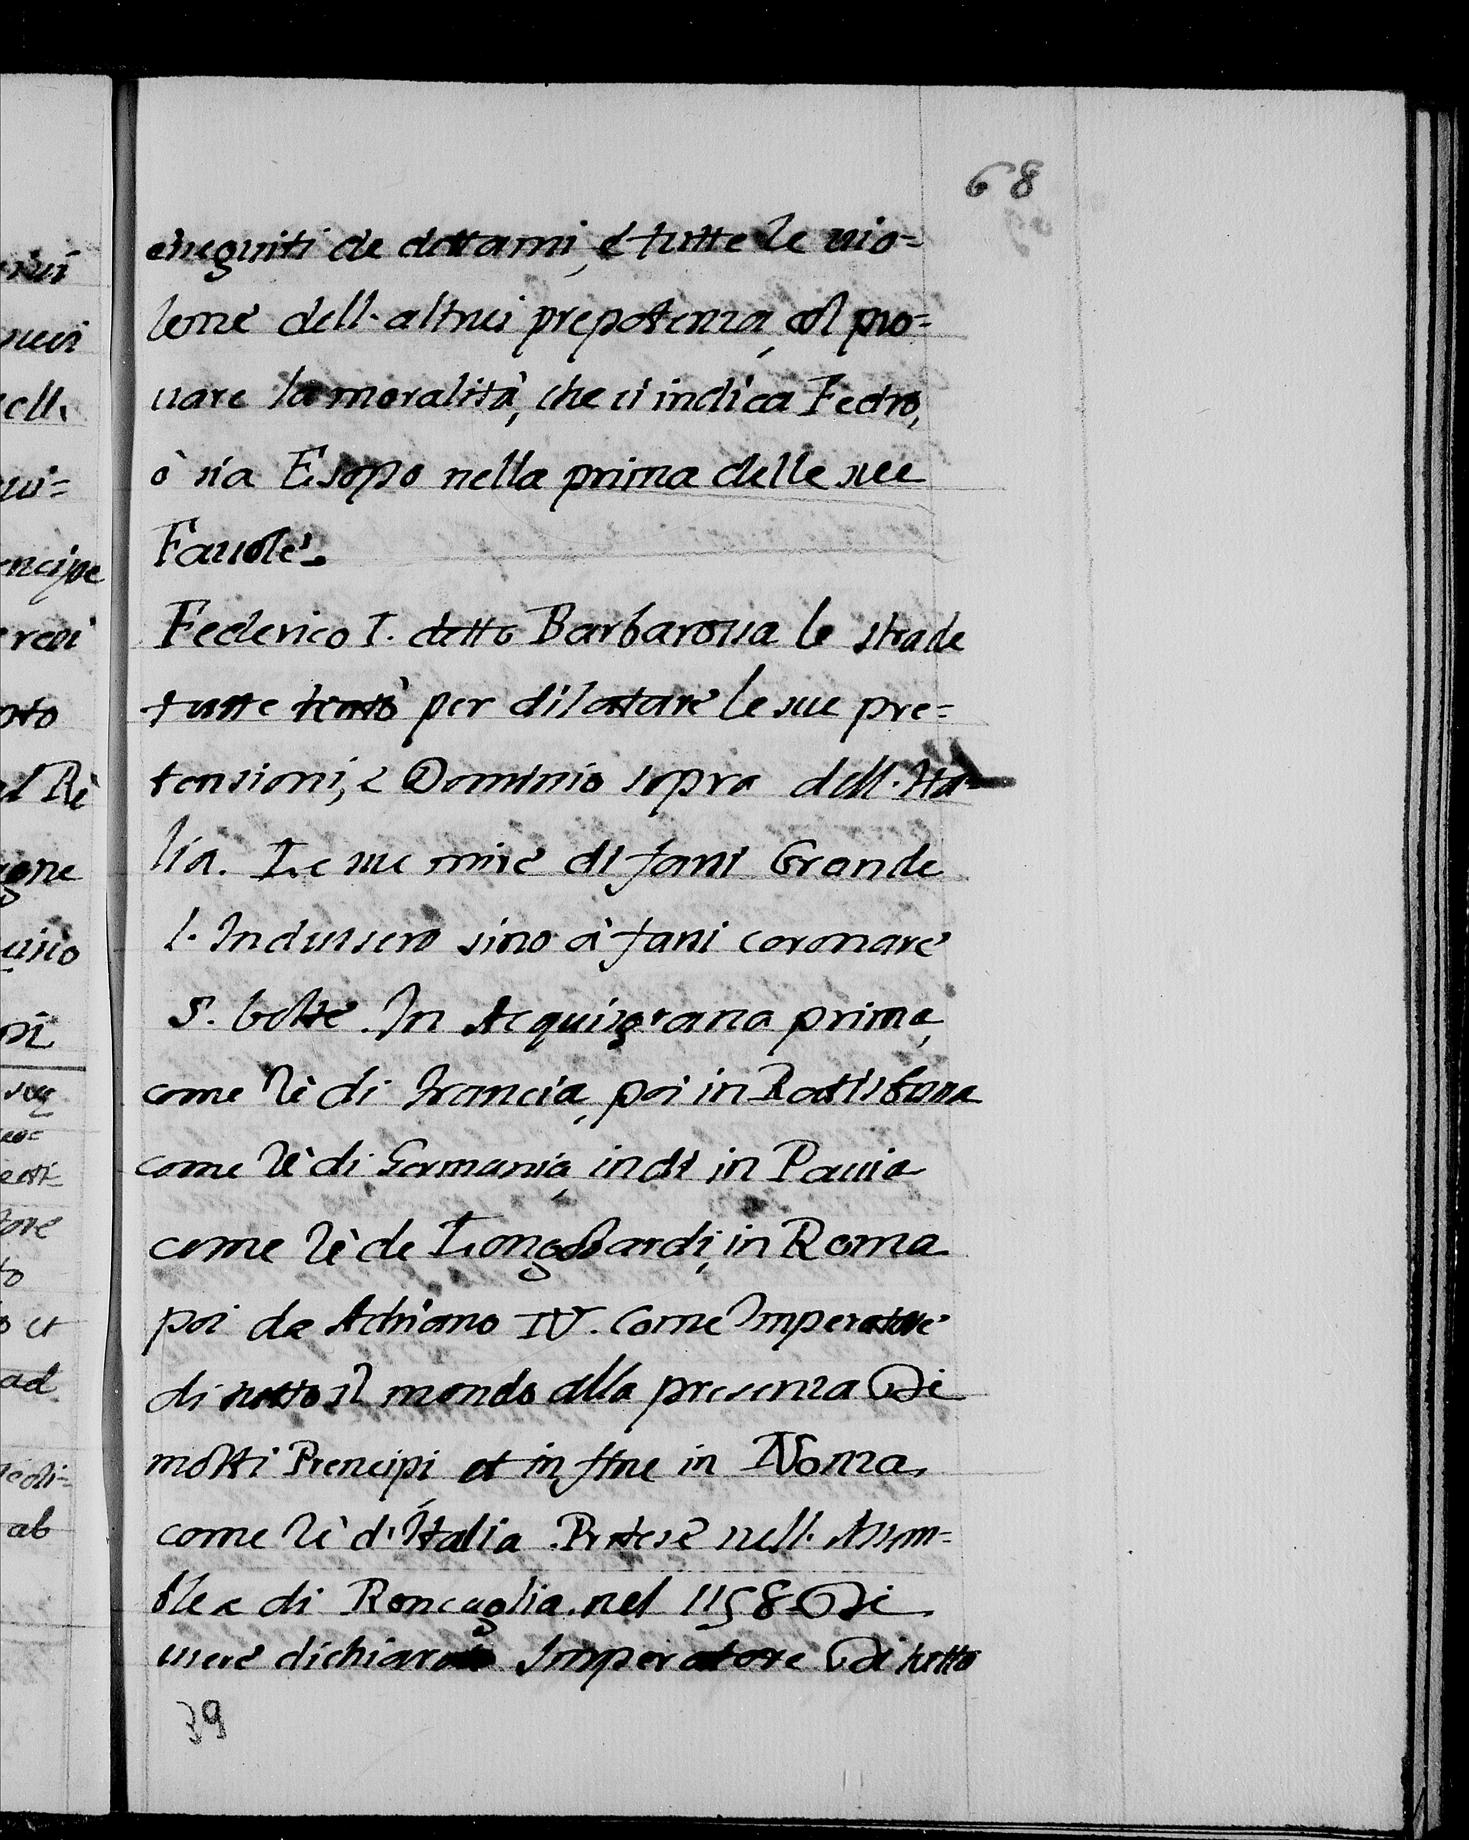 68
eseguiti de dettami, e tutte le uio=
lenze dell. altrui prepotenza, col pro=
uare la moralità, che ci indica Fedro,
ò sia Esopo nella prima delle sue
Fauole.
Federico I. detto Barbarossa le strade
tutte tentò per dilatare le sue pre=
tensioni, e Dominio sopra dell. Ita=
lia. Le sue mire di farsi Grande
l. Indussero sino à farsi coronare
5. uolte. In Acquisgrana prima,
come Rè di Francia, poi in Ratisbona
come Rè di Germania, indi in Pauia
come Rè de Longobardi, in Roma
poi da Adriano IV. come Imperatore
di tutto il mondo alla presenza Di
molti Prencipi et in fine in Monza,
come Rè d'Italia. Pretese nell. Assem=
blea di Roncaglia nel 1158 Di
uiere dichiarato Imperatore Di tutto
39
riui
ell.
ui=
encipe
oto
al Rè
gone
uiso
ni
suq
tore
to
o et
ad
ab